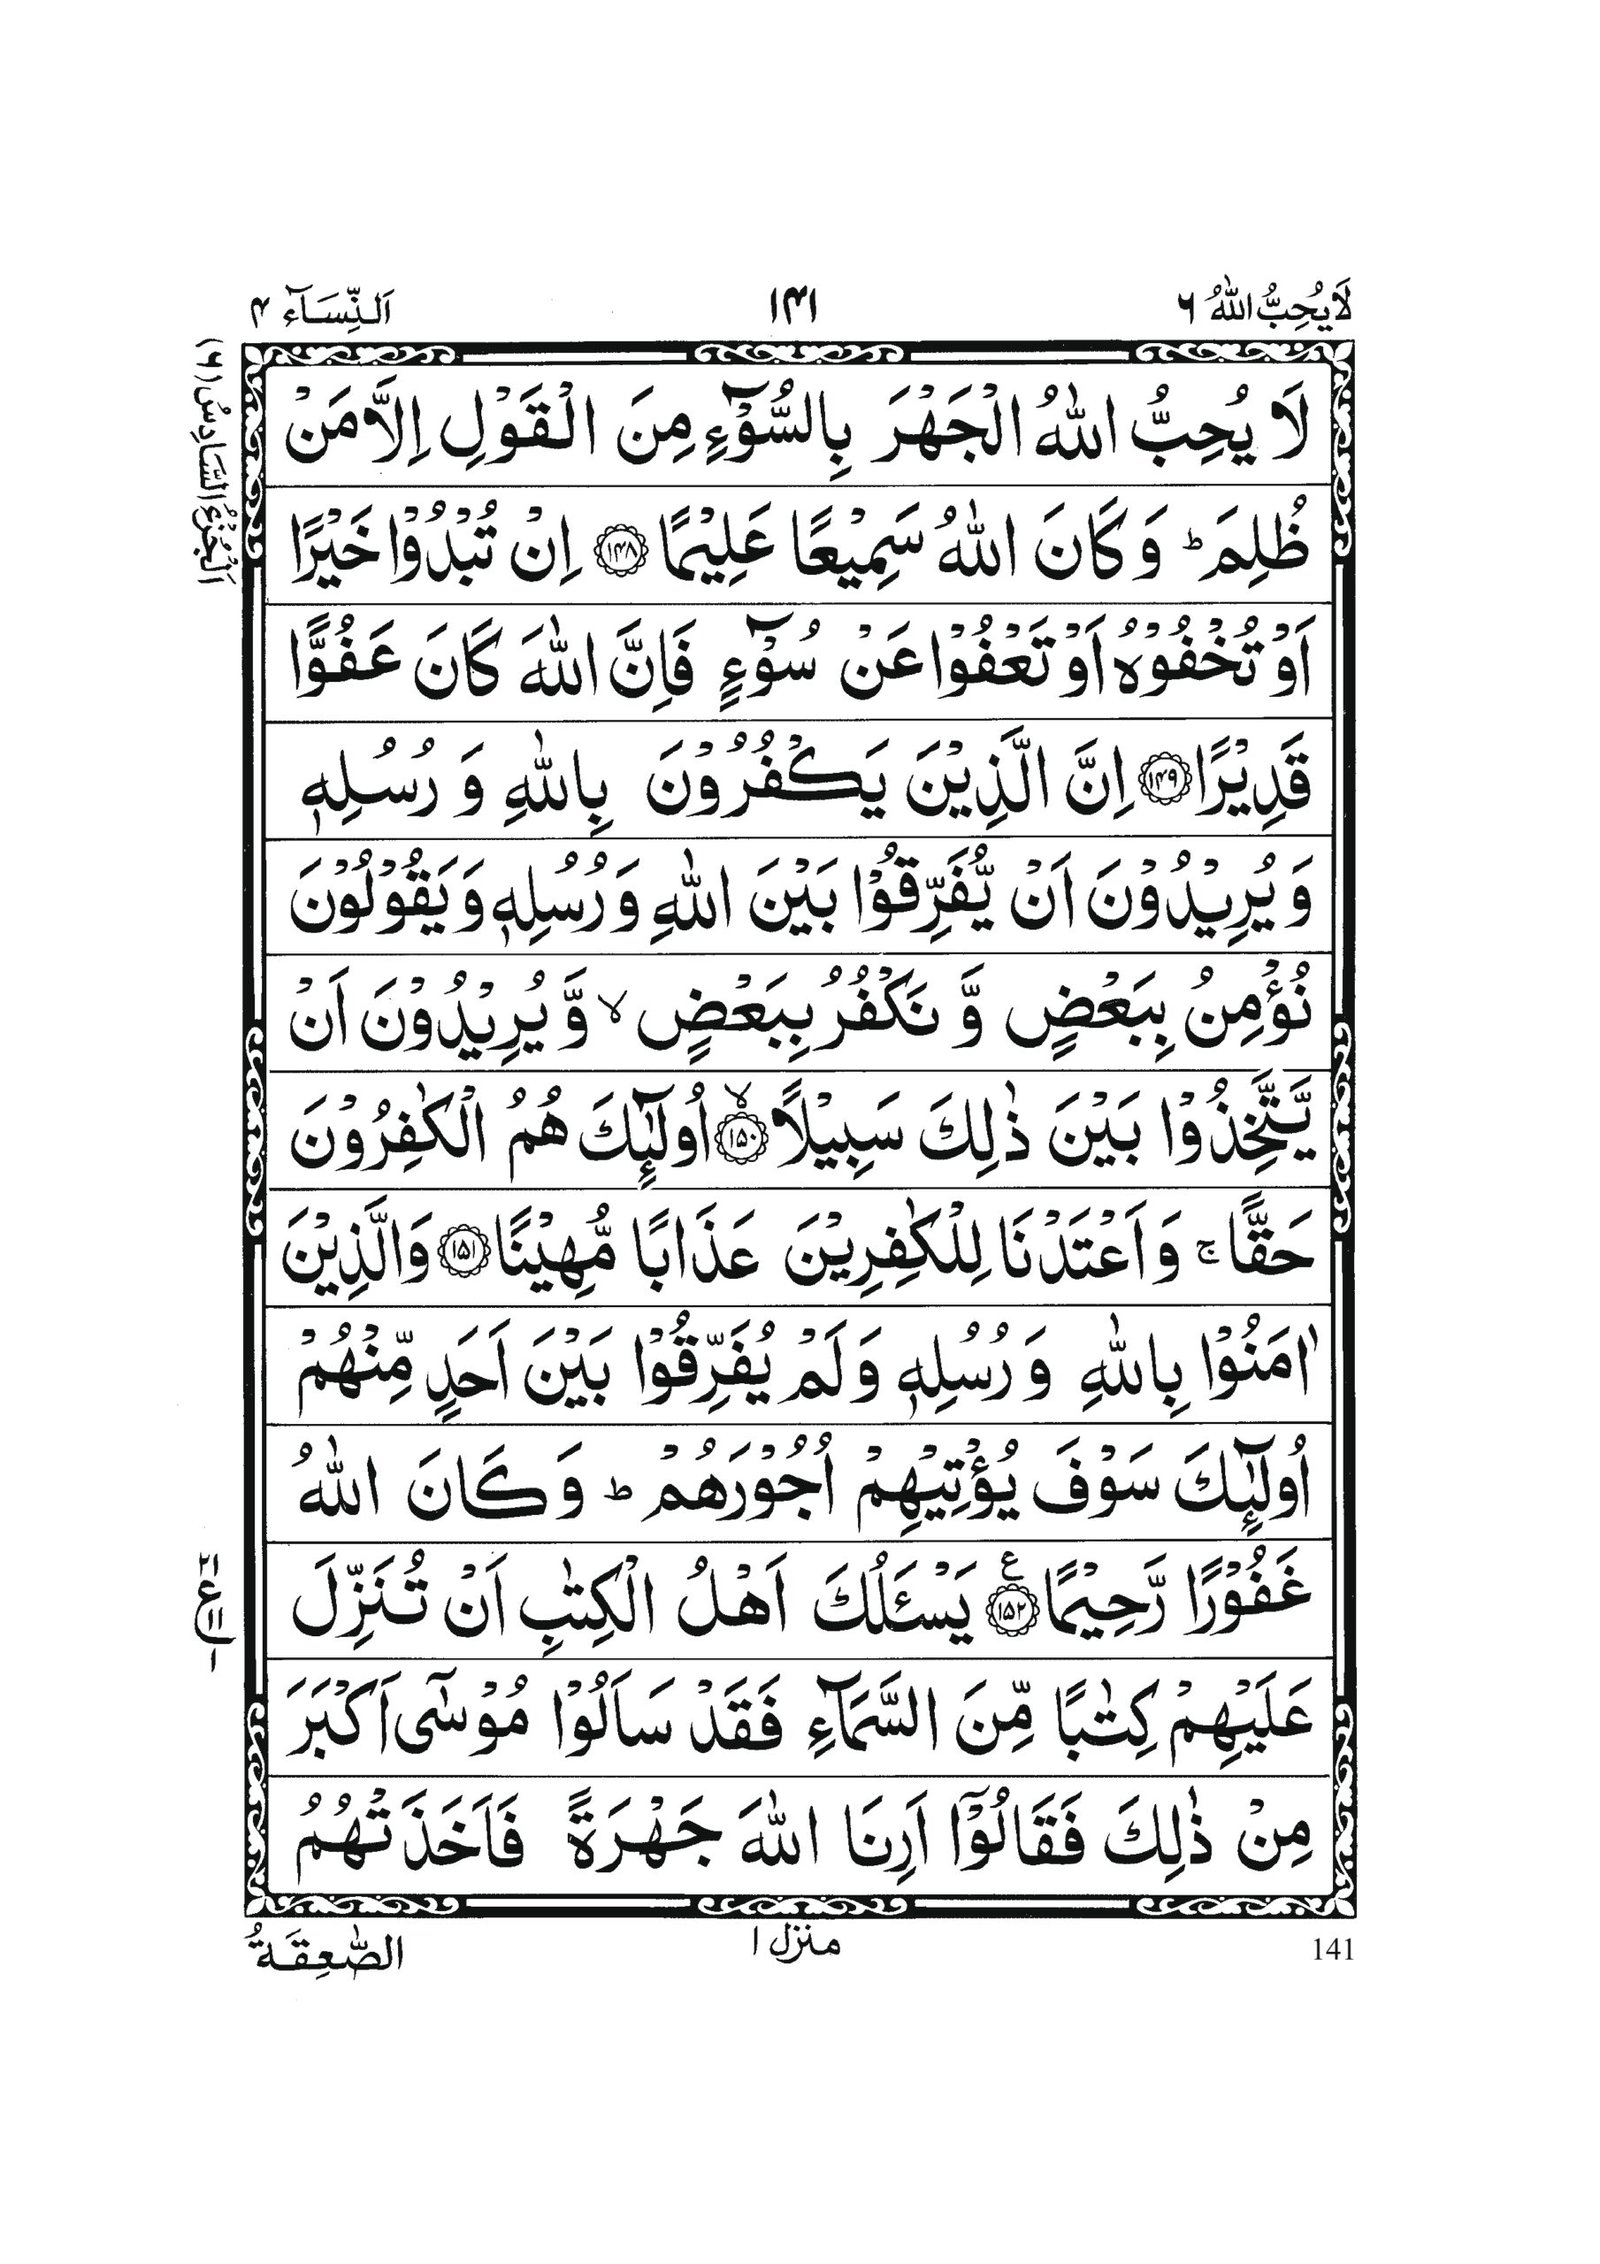 لَا يُحِبُّ اللّٰهُ ٦
١٤١
اَلنِّسَآء ٤
اَلْجُزْءُ السَّادِسُ (٦)
لَا يُحِبُّ اللّٰهُ الْجَهْرَ بِالسُّوْٓءِ مِنَ الْقَوْلِ اِلَّا مَنْ
ظُلِمَ ؕ وَ كَانَ اللّٰهُ سَمِيْعًا عَلِيْمًا ﴿۱۴۸﴾ اِنْ تُبْدُوْا خَيْرًا
اَوْ تُخْفُوْهُ اَوْ تَعْفُوْا عَنْ سُوْٓءٍ فَاِنَّ اللّٰهَ كَانَ عَفُوًّا
قَدِيْرًا ﴿۱۴۹﴾ اِنَّ الَّذِيْنَ يَكْفُرُوْنَ بِاللّٰهِ وَ رُسُلِهٖ
وَ يُرِيْدُوْنَ اَنْ يُّفَرِّقُوْا بَيْنَ اللّٰهِ وَ رُسُلِهٖ وَ يَقُوْلُوْنَ
نُؤْمِنُ بِبَعْضٍ وَّ نَكْفُرُ بِبَعْضٍ ۙ وَّ يُرِيْدُوْنَ اَنْ
يَّتَّخِذُوْا بَيْنَ ذٰلِكَ سَبِيْلًا ﴿۱۵۰﴾ ۙ اُولٰٓئِكَ هُمُ الْكٰفِرُوْنَ
حَقًّا ۚ وَ اَعْتَدْنَا لِلْكٰفِرِيْنَ عَذَابًا مُّهِيْنًا ﴿۱۵۱﴾ وَ الَّذِيْنَ
اٰمَنُوْا بِاللّٰهِ وَ رُسُلِهٖ وَ لَمْ يُفَرِّقُوْا بَيْنَ اَحَدٍ مِّنْهُمْ
اُولٰٓئِكَ سَوْفَ يُؤْتِيْهِمْ اُجُوْرَهُمْ ؕ وَ كَانَ اللّٰهُ
غَفُوْرًا رَّحِيْمًا ﴿۱۵۲﴾ ع يَسْـَٔلُكَ اَهْلُ الْكِتٰبِ اَنْ تُنَزِّلَ
عَلَيْهِمْ كِتٰبًا مِّنَ السَّمَآءِ فَقَدْ سَاَلُوْا مُوْسٰٓى اَكْبَرَ
مِنْ ذٰلِكَ فَقَالُوْٓا اَرِنَا اللّٰهَ جَهْرَةً فَاَخَذَتْهُمُ
الصّٰعِقَةُ
منزل ١
141